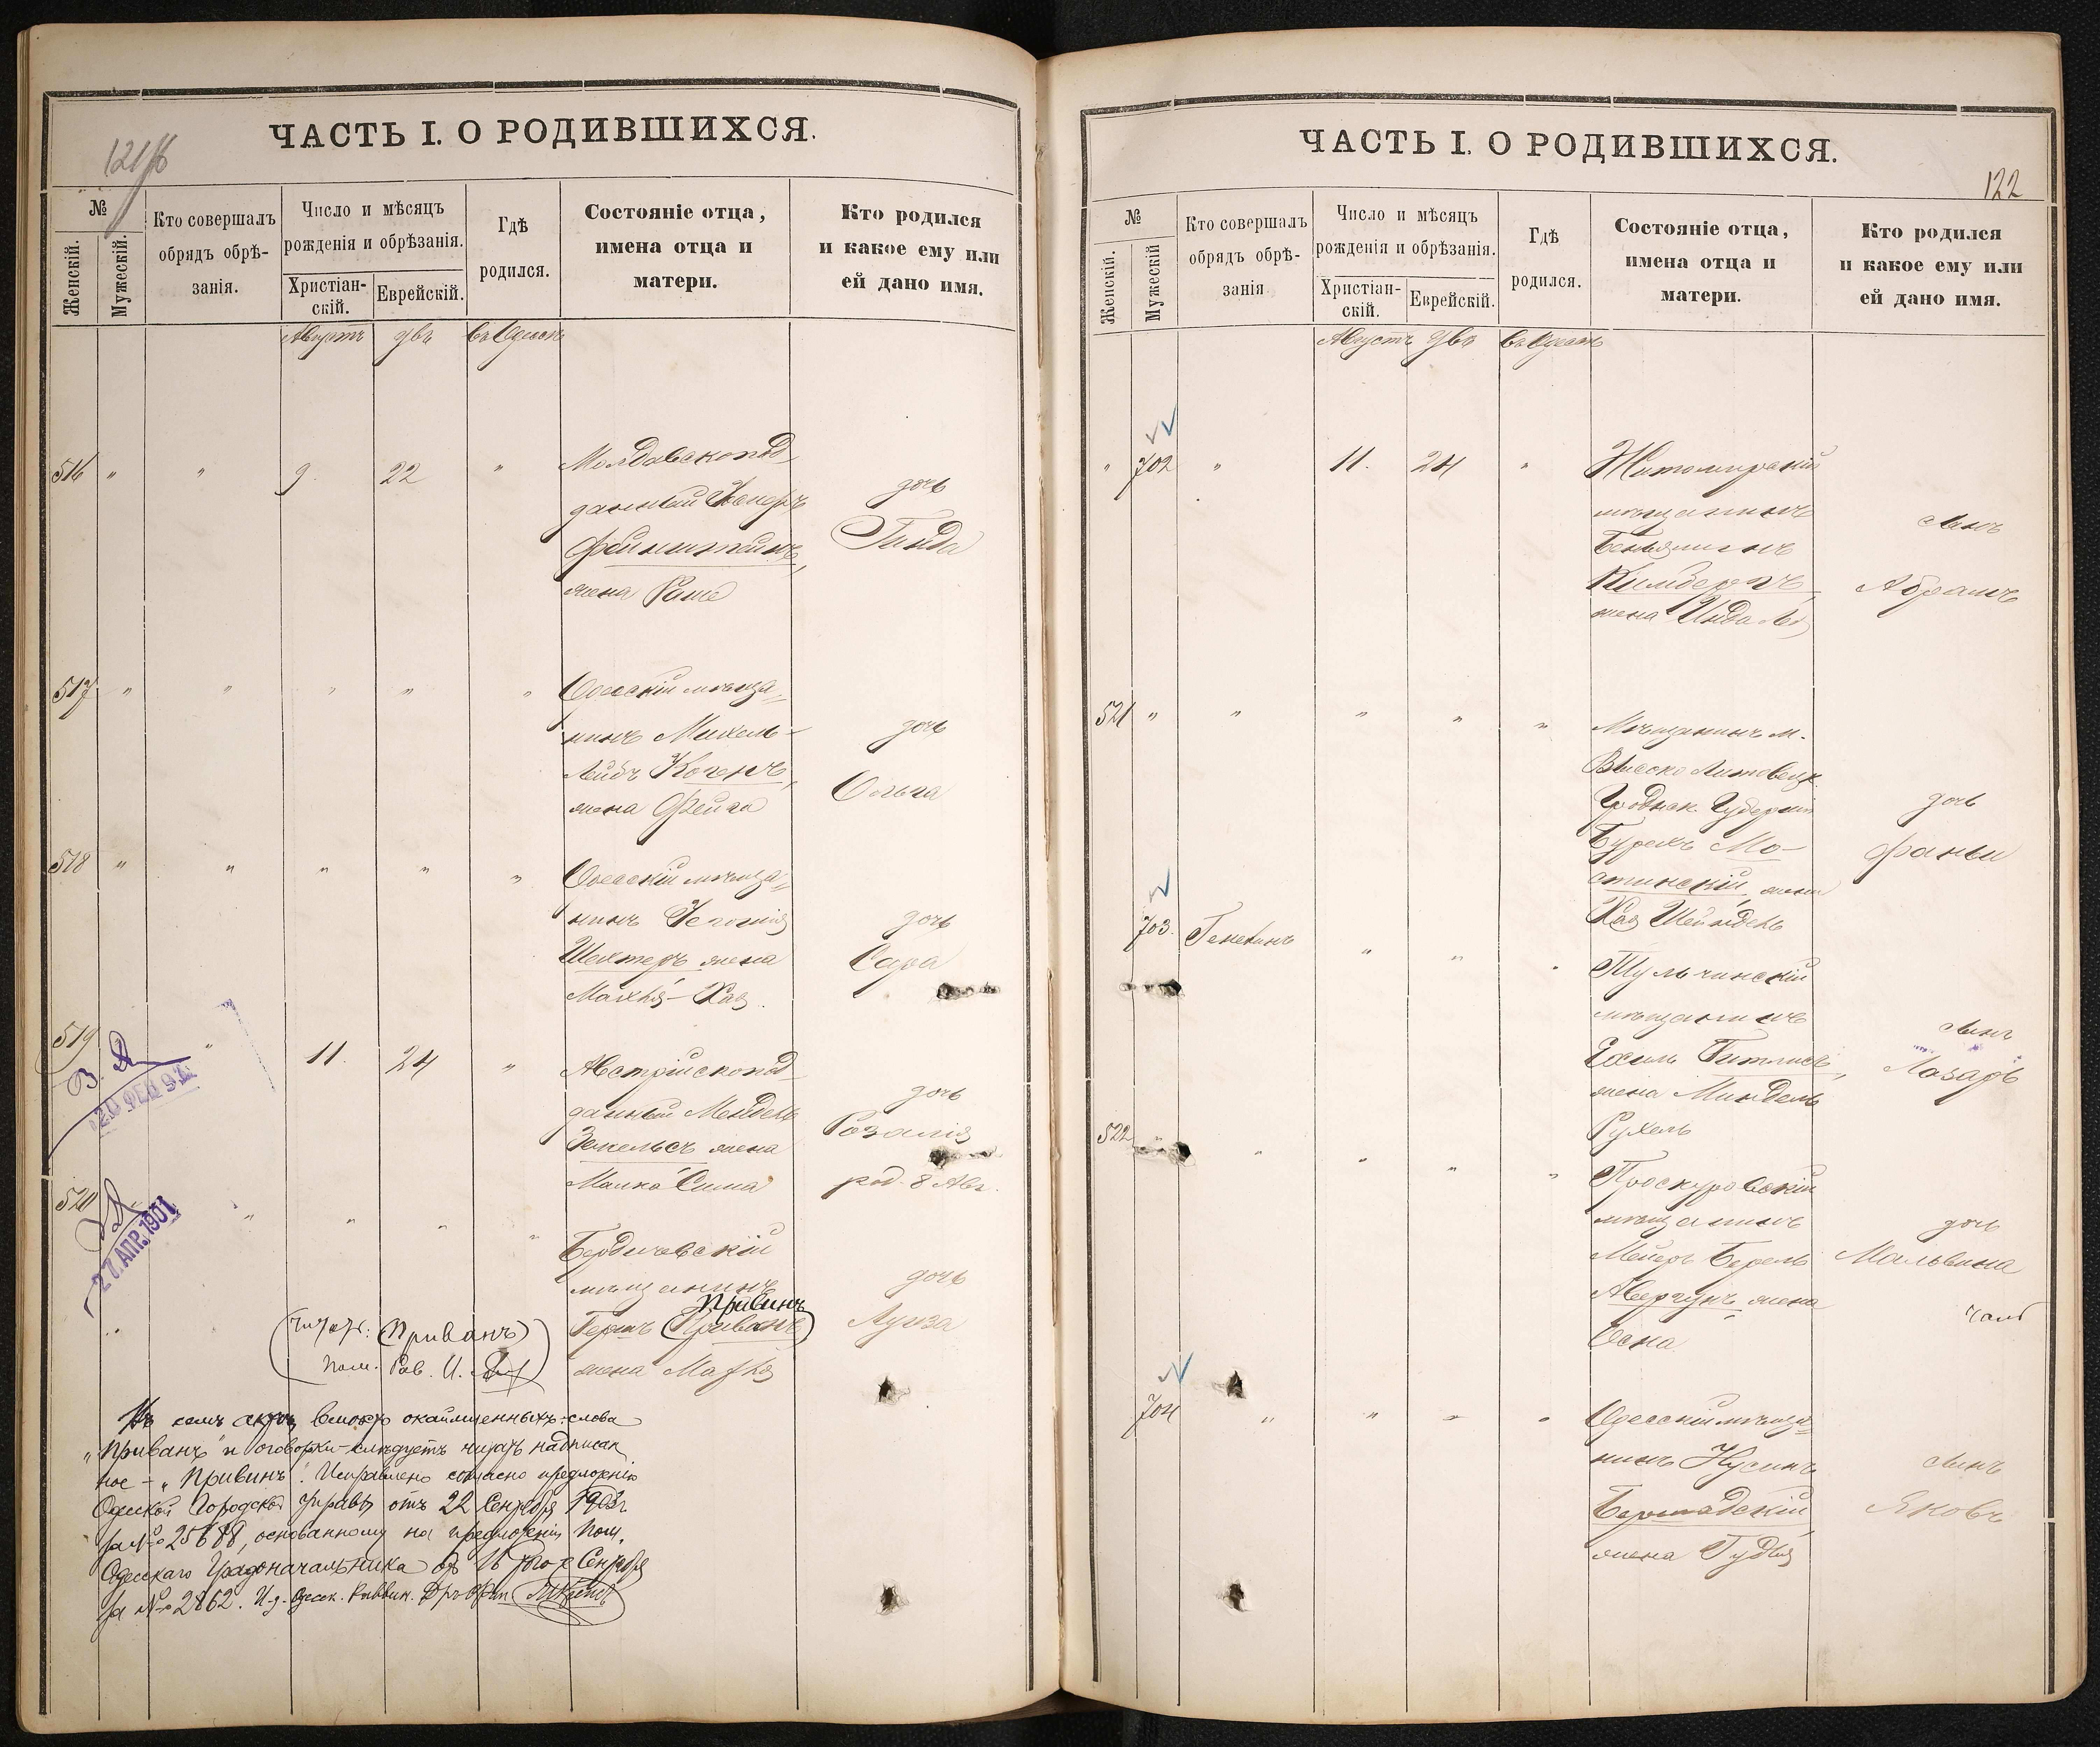 ЧАСТЬ I. О РОДИВШИХСЯ.
№
Женскій.
Мужескій.
Кто совершалъ
обрядъ обрѣ-
занія.
Число и мѣсяцъ
рожденія и обрѣзанія.
Христіан-
скій.
Еврейскій.
Гдѣ
родился.
Состояніе отца,
имена отца и
матери.
Кто родился
и какое ему или
ей дано имя.
Августъ Овъ въ Одессѣ
516 " " 9. 22 "
Молдавскопод-
данный
Файнштейнъ,
жена
дочь
517 " " " " "
Одесскій мѣща-
нинъ Михель-
Лейбъ Когенъ,
жена Фейга
дочь
Ольга
518 " " " " "
Одесскій мѣща-
нинъ
Шехтеръ жена
Хая.
дочь
Сара
519 " 11. 24 "
Австрійскопод-
данный Мендель
Земельсъ жена
Малка Сима
дочь
Розалія
род. 8 Авг.
20 ФЕВ 97
520 " " " "
Бердичевскій
мѣщанинъ
Привинъ
Герш (Приванъ)
жена
дочь
Луиза
27. АПР. 1901
(читать: (Приванъ)
Пом. Рав. И.
Въ семъ актѣ вмѣсто окаймленныхъ: слова
„Приванъ" и оговорки-слѣдуетъ читать надписан
ное - „Привинъ". Исправлено согласно предложенію
Одесской Городской Управы отъ 22 Сентября 1903г
за № 25688, основанному на предложеніи Пом.
Одесскаго Градоначальника отъ 16 того-же Сентября
за № 2862. И.д. Одесск. Раввин.
ЧАСТЬ I. О РОДИВШИХСЯ.
122
№
Женскій.
Мужескій
Кто совершалъ
обрядъ обрѣ-
занія
Число и мѣсяцъ
рожденія и обрѣзанія.
Христіан-
скій.
Еврейскій.
Гдѣ
родился.
Состояніе отца,
имена отца и
матери.
Кто родился
и какое ему или
ей дано имя.
Августъ Овъ въ Одессѣ
" 702 " 11. 24 "
Житомирскій
мѣщанинъ
Беньяминъ
жена
сынъ
Абрамъ
521 " " " " "
Мѣщанинъ м.
Высоко Литовск.
Гроднен. Губерніи
Бурехъ Мо-
стинскій, жена
Хая Шейндель
дочь
Фаньи
703. " " "
Тульчинскій
мѣщанинъ
жена Миндель
Рухель
сынъ
Лазарь
522 " " " " "
Проскуровскій
мѣщанинъ
Мейеръ Берель
Авергунъ жена
Осна
дочь
Мальвина
704 " " " "
Одесскій мѣща-
нинъ Нусинъ
Бершадскій,
жена
сынъ
Яковъ